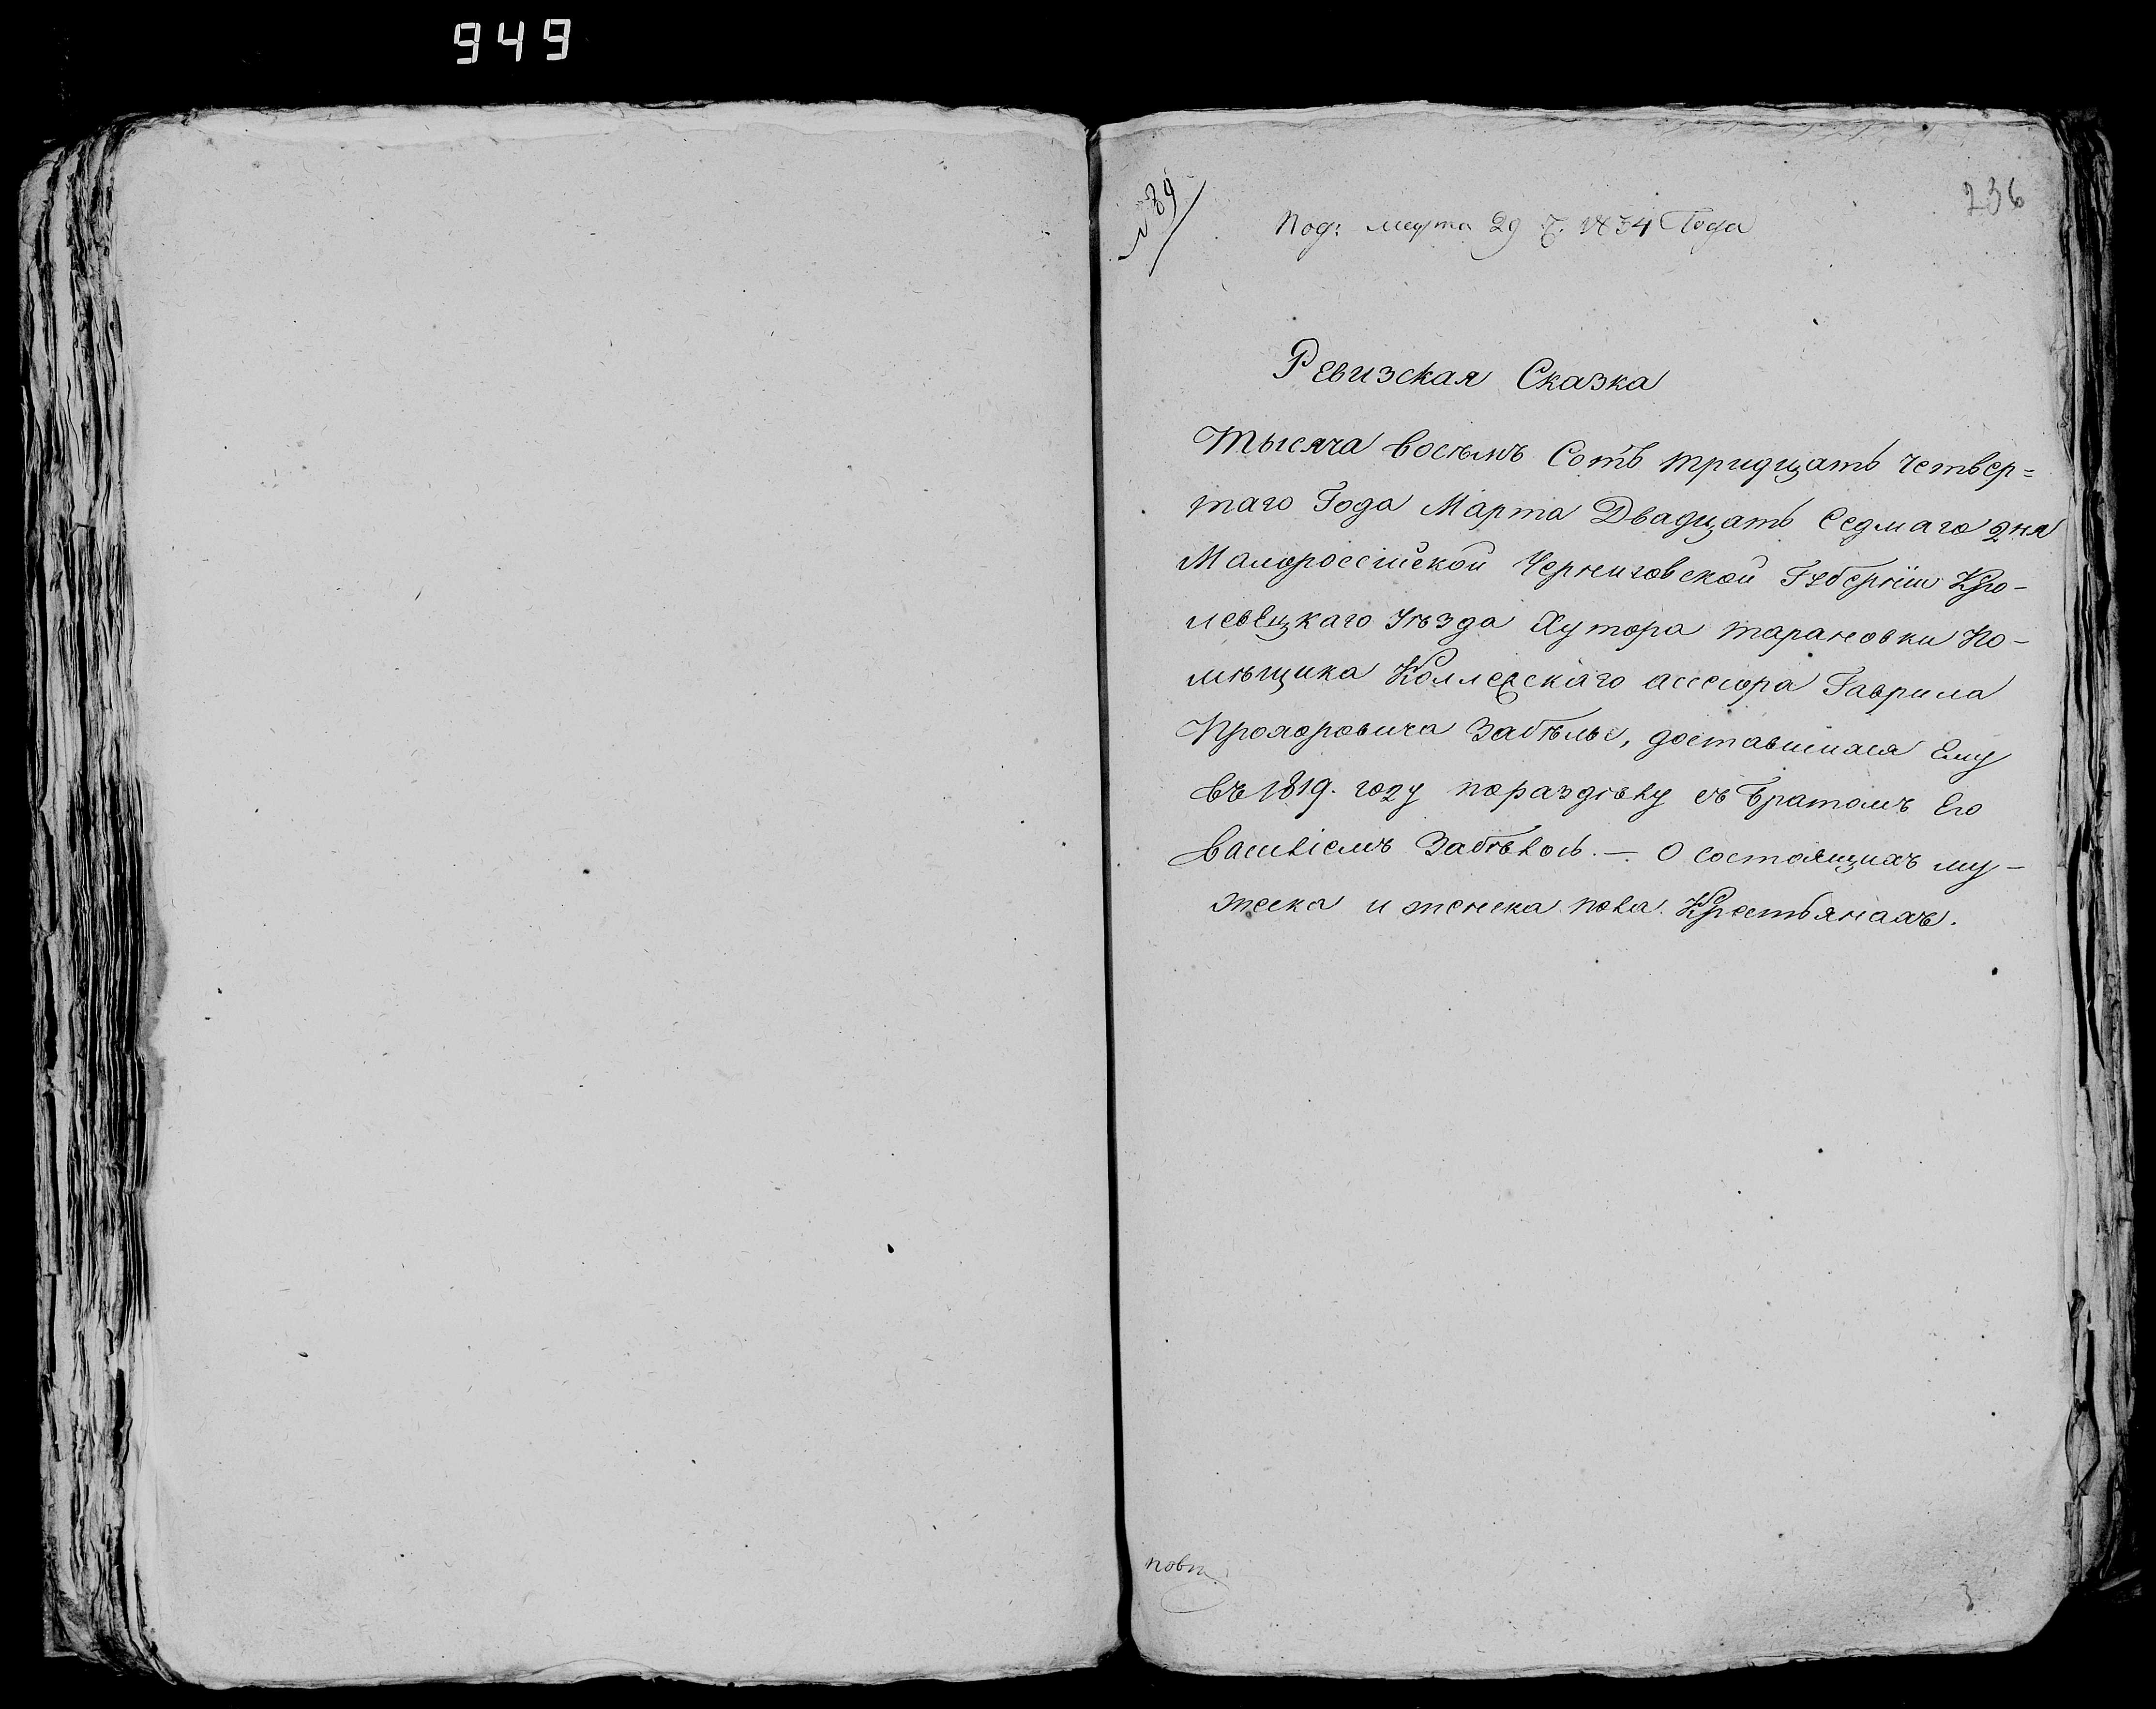 949
№ 89
236
Под: марта 29 д. 1834 Года
Ревизская Сказка
Тысяча восемъ Сотъ тридцать четвер=
таго Года Марта Двадцать Седмаго дня
Малороссійской Черниговской Губерніи Кро-
левецкаго Уѣзда Хутора тарановки По-
мѣщика Коллежскаго ассесора Гаврила
Прохоровича Забѣлы, доставшиася Ему
въ 1819. году поразделу съ братомъ Его
Василіемъ Забѣлою. — О состоящихъ му-
жеска и женска пола Крестьянахъ.